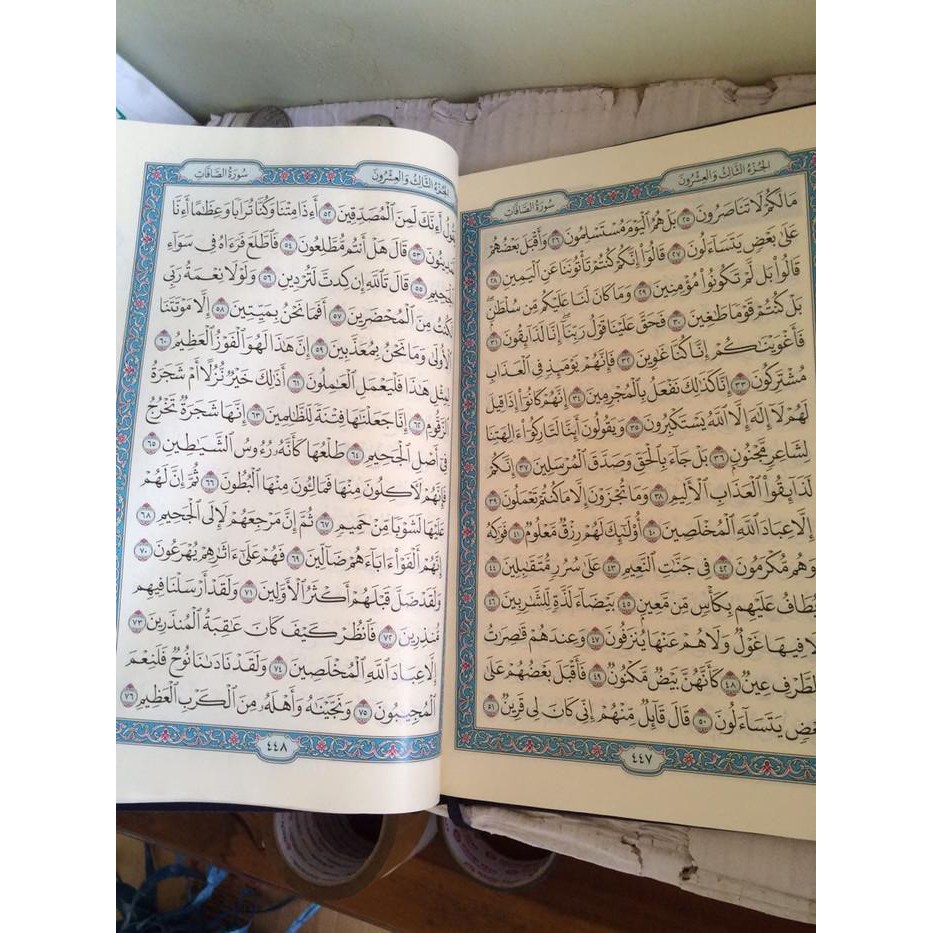 الجُزْءُ الثَّالِثُ وَالعِشْرُونَ
سُورَةُ الصَّافَّاتِ
مَا لَكُمْ لَا تَنَاصَرُونَ ٢٥ بَلْ هُمُ ٱلْيَوْمَ مُسْتَسْلِمُونَ ٢٦ وَأَقْبَلَ بَعْضُهُمْ
عَلَىٰ بَعْضٍ يَتَسَآءَلُونَ ٢٧ قَالُوٓا۟ إِنَّكُمْ كُنتُمْ تَأْتُونَنَا عَنِ ٱلْيَمِينِ ٢٨
قَالُوا۟ بَل لَّمْ تَكُونُوا۟ مُؤْمِنِينَ ٢٩ وَمَا كَانَ لَنَا عَلَيْكُم مِّن سُلْطَـٰنٍۭ
بَلْ كُنتُمْ قَوْمًا طَـٰغِينَ ٣٠ فَحَقَّ عَلَيْنَا قَوْلُ رَبِّنَآ إِنَّا لَذَآئِقُونَ ٣١
فَأَغْوَيْنَـٰكُمْ إِنَّا كُنَّا غَـٰوِينَ ٣٢ فَإِنَّهُمْ يَوْمَئِذٍ فِى ٱلْعَذَابِ
مُشْتَرِكُونَ ٣٣ إِنَّا كَذَٰلِكَ نَفْعَلُ بِٱلْمُجْرِمِينَ ٣٤ إِنَّهُمْ كَانُوٓا۟ إِذَا قِيلَ
لَهُمْ لَآ إِلَـٰهَ إِلَّا ٱللَّهُ يَسْتَكْبِرُونَ ٣٥ وَيَقُولُونَ أَئِنَّا لَتَارِكُوٓا۟ ءَالِهَتِنَا
لِشَاعِرٍ مَّجْنُونٍۭ ٣٦ بَلْ جَآءَ بِٱلْحَقِّ وَصَدَّقَ ٱلْمُرْسَلِينَ ٣٧ إِنَّكُمْ
لَذَآئِقُوا۟ ٱلْعَذَابِ ٱلْأَلِيمِ ٣٨ وَمَا تُجْزَوْنَ إِلَّا مَا كُنتُمْ تَعْمَلُونَ ٣٩
إِلَّا عِبَادَ ٱللَّهِ ٱلْمُخْلَصِينَ ٤٠ أُو۟لَـٰٓئِكَ لَهُمْ رِزْقٌ مَّعْلُومٌ ٤١ فَوَٰكِهُ
وَهُم مُّكْرَمُونَ ٤٢ فِى جَنَّـٰتِ ٱلنَّعِيمِ ٤٣ عَلَىٰ سُرُرٍ مُّتَقَـٰبِلِينَ ٤٤
يُطَافُ عَلَيْهِم بِكَأْسٍ مِّن مَّعِينٍۭ ٤٥ بَيْضَآءَ لَذَّةٍ لِّلشَّـٰرِبِينَ ٤٦
لَا فِيهَا غَوْلٌ وَلَا هُمْ عَنْهَا يُنزَفُونَ ٤٧ وَعِندَهُمْ قَـٰصِرَٰتُ
ٱلطَّرْفِ عِينٌ ٤٨ كَأَنَّهُنَّ بَيْضٌ مَّكْنُونٌ ٤٩ فَأَقْبَلَ بَعْضُهُمْ عَلَىٰ
بَعْضٍ يَتَسَآءَلُونَ ٥٠ قَالَ قَآئِلٌ مِّنْهُمْ إِنِّى كَانَ لِى قَرِينٌ ٥١
٤٤٧
الجُزْءُ الثَّالِثُ وَالعِشْرُونَ
سُورَةُ الصَّافَّاتِ
يَقُولُ أَءِنَّكَ لَمِنَ ٱلْمُصَدِّقِينَ ٥٢ أَءِذَا مِتْنَا وَكُنَّا تُرَابًا وَعِظَـٰمًا أَءِنَّا
لَمَدِينُونَ ٥٣ قَالَ هَلْ أَنتُم مُّطَّلِعُونَ ٥٤ فَٱطَّلَعَ فَرَءَاهُ فِى سَوَآءِ
ٱلْجَحِيمِ ٥٥ قَالَ تَٱللَّهِ إِن كِدتَّ لَتُرْدِينِ ٥٦ وَلَوْلَا نِعْمَةُ رَبِّى
لَكُنتُ مِنَ ٱلْمُحْضَرِينَ ٥٧ أَفَمَا نَحْنُ بِمَيِّتِينَ ٥٨ إِلَّا مَوْتَتَنَا
ٱلْأُولَىٰ وَمَا نَحْنُ بِمُعَذَّبِينَ ٥٩ إِنَّ هَـٰذَا لَهُوَ ٱلْفَوْزُ ٱلْعَظِيمُ ٦٠
لِمِثْلِ هَـٰذَا فَلْيَعْمَلِ ٱلْعَـٰمِلُونَ ٦١ أَذَٰلِكَ خَيْرٌ نُّزُلًا أَمْ شَجَرَةُ
ٱلزَّقُّومِ ٦٢ إِنَّا جَعَلْنَـٰهَا فِتْنَةً لِّلظَّـٰلِمِينَ ٦٣ إِنَّهَا شَجَرَةٌ تَخْرُجُ
فِىٓ أَصْلِ ٱلْجَحِيمِ ٦٤ طَلْعُهَا كَأَنَّهُۥ رُءُوسُ ٱلشَّيَـٰطِينِ ٦٥
فَإِنَّهُمْ لَـَٔاكِلُونَ مِنْهَا فَمَالِـُٔونَ مِنْهَا ٱلْبُطُونَ ٦٦ ثُمَّ إِنَّ لَهُمْ
عَلَيْهَا لَشَوْبًا مِّنْ حَمِيمٍ ٦٧ ثُمَّ إِنَّ مَرْجِعَهُمْ لَإِلَى ٱلْجَحِيمِ ٦٨
إِنَّهُمْ أَلْفَوْا۟ ءَابَآءَهُمْ ضَآلِّينَ ٦٩ فَهُمْ عَلَىٰٓ ءَاثَـٰرِهِمْ يُهْرَعُونَ ٧٠
وَلَقَدْ ضَلَّ قَبْلَهُمْ أَكْثَرُ ٱلْأَوَّلِينَ ٧١ وَلَقَدْ أَرْسَلْنَا فِيهِم
مُّنذِرِينَ ٧٢ فَٱنظُرْ كَيْفَ كَانَ عَـٰقِبَةُ ٱلْمُنذَرِينَ ٧٣
إِلَّا عِبَادَ ٱللَّهِ ٱلْمُخْلَصِينَ ٧٤ وَلَقَدْ نَادَىٰنَا نُوحٌ فَلَنِعْمَ
ٱلْمُجِيبُونَ ٧٥ وَنَجَّيْنَـٰهُ وَأَهْلَهُۥ مِنَ ٱلْكَرْبِ ٱلْعَظِيمِ ٧٦
٤٤٨